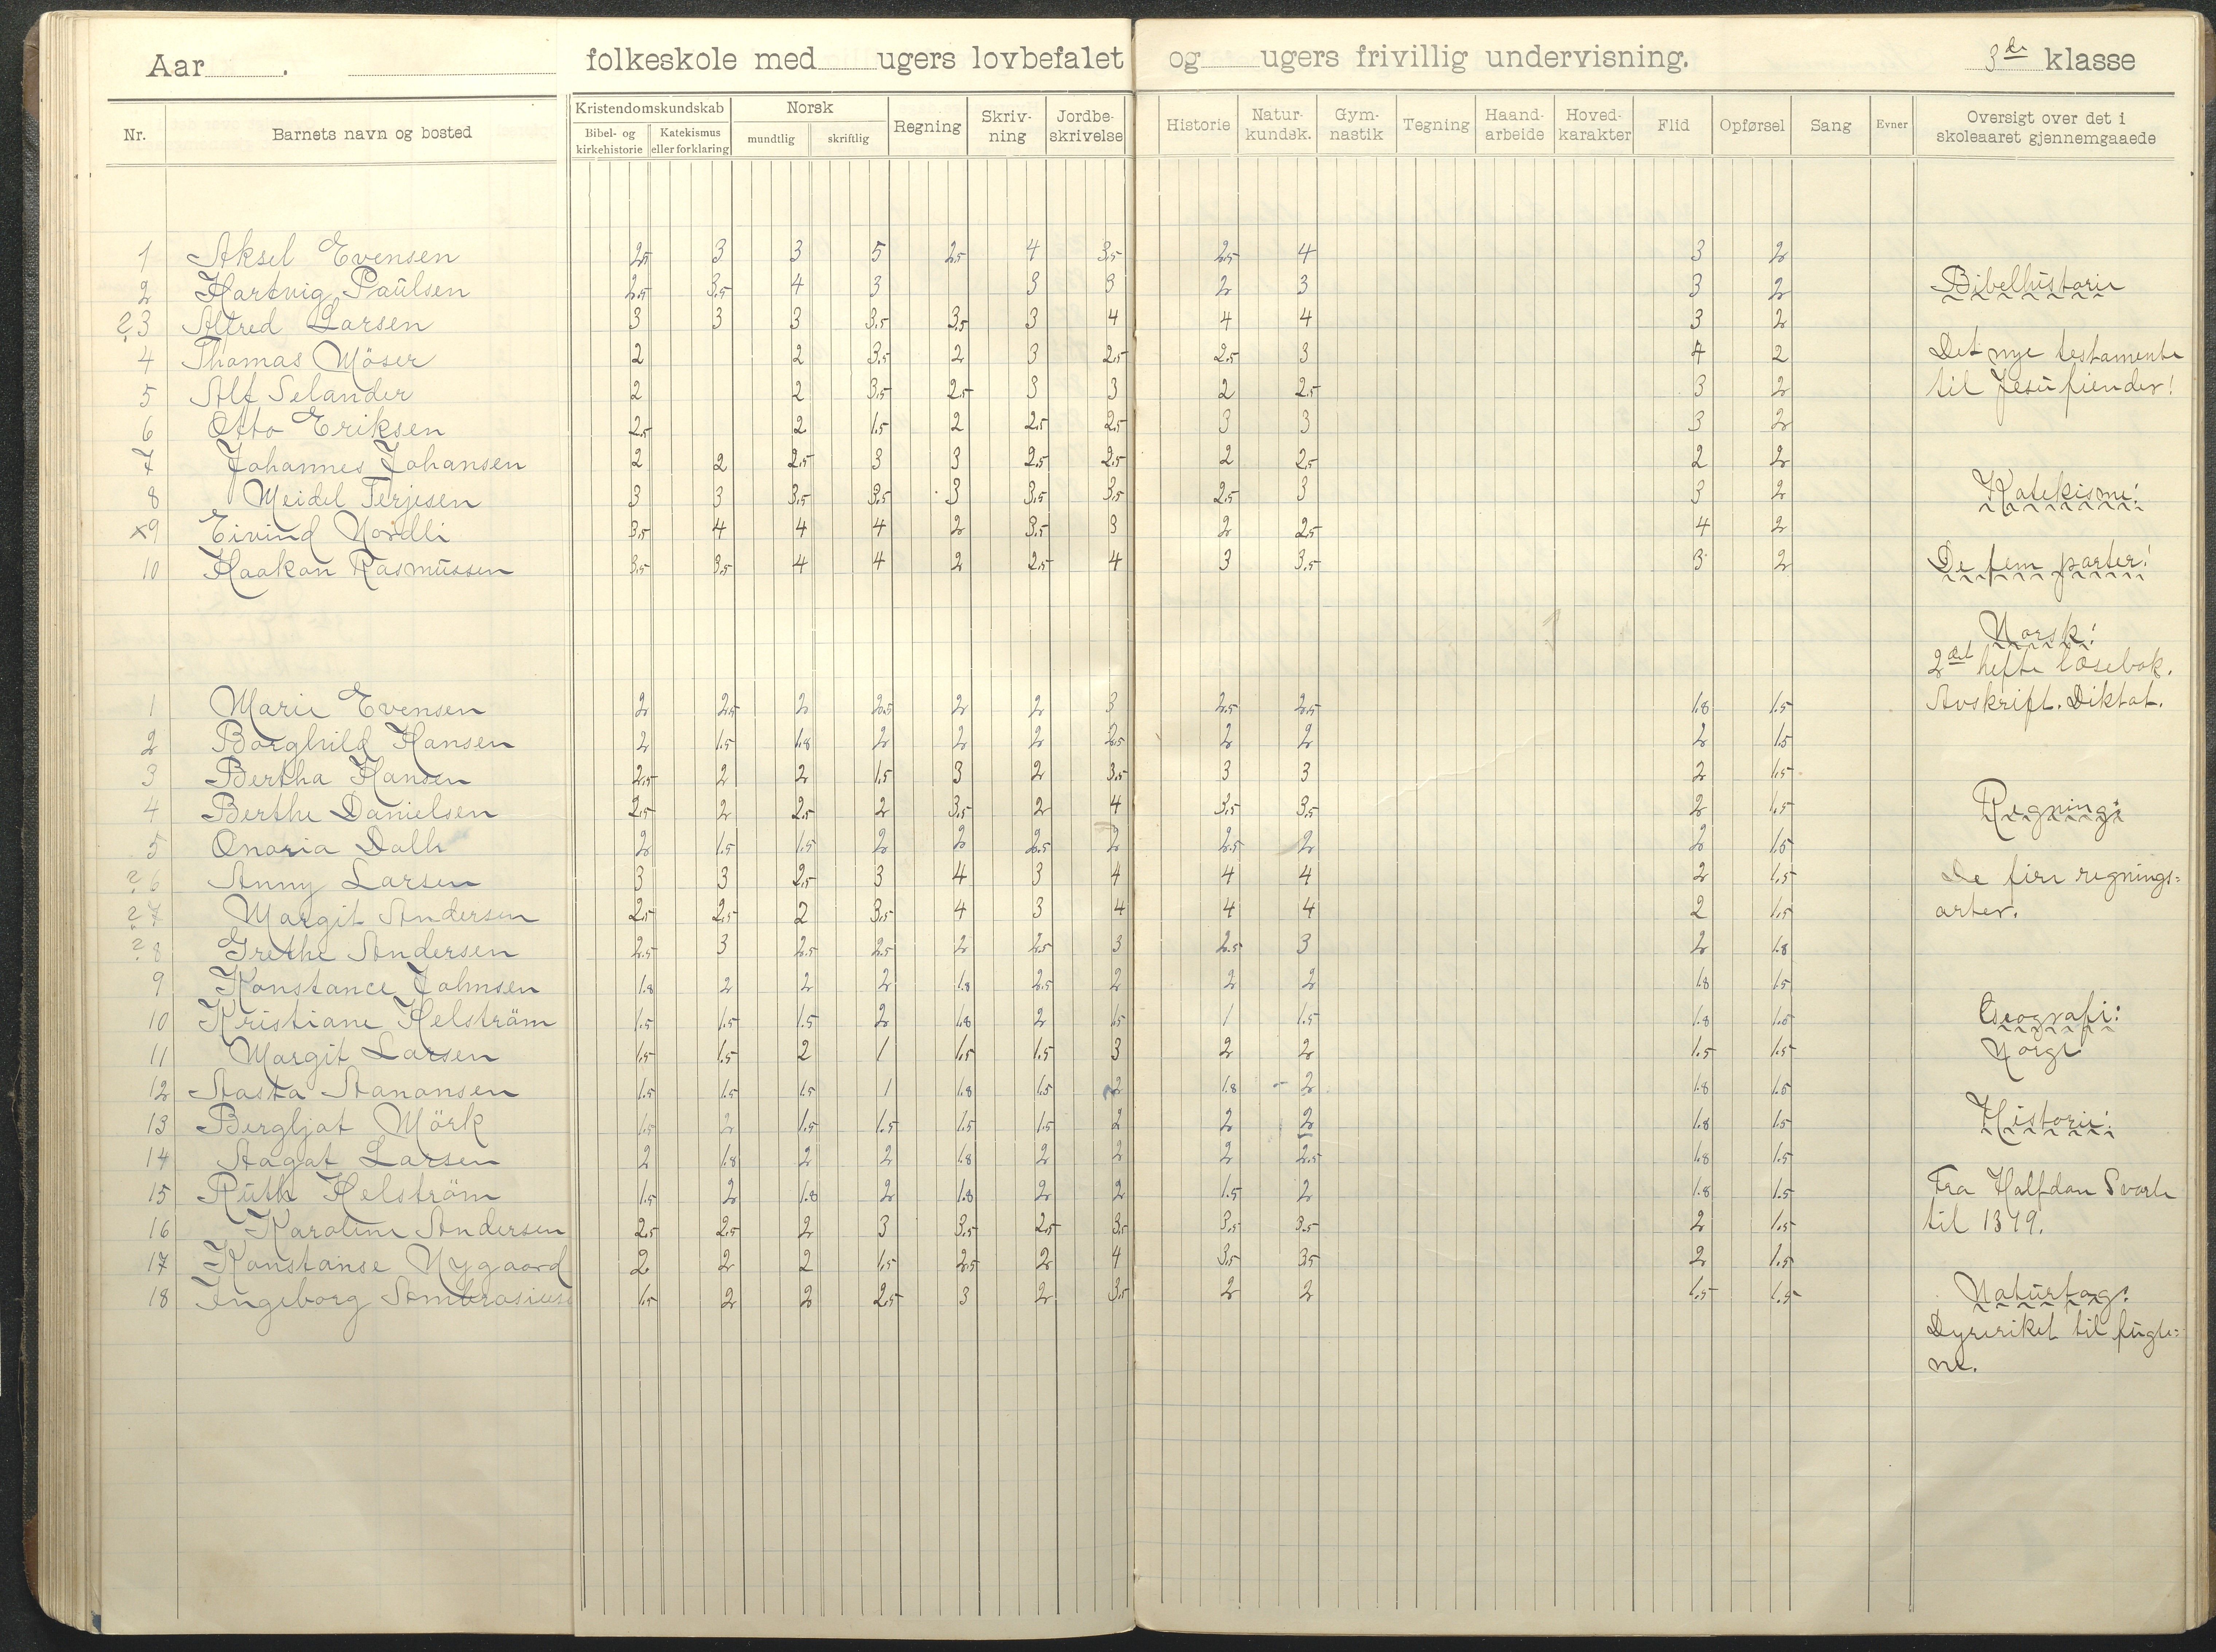 Aar . folkeskole med ugers lovbefalet og ugers frivillig undervisning. 3de klasse
Nr. Barnets navn og bosted Kristendomskundskab Bibel- og kirkehistorie Katekismus eller forklaring Norsk mundtlig skriftlig Regning Skriv-ning Jordbe-skrivelse Historie Natur-kundsk. Gym-nastik Tegning Haand-arbeide Hoved-karakter Flid Opførsel Sang Evner Oversigt over det i skoleaaret gjennemgaaede
1 Aksel Evensen 2.5 3 3 5 2.5 4 3.5 2.5 4 3 2
2 Hartvig Paulsen 2.5 3.5 4 3 3 3 2 3 3 2 Bibelhistorie
? 3 Alfred Larsen 3 3 3 3.5 3.5 3 4 4 4 3 2
4 Thomas Möser 2 2 3.5 2 3 2.5 2.5 3 4 2 Det nye testamente
5 Alf Selander 2 2 3.5 2.5 3 3 2 2.5 3 2 til Jesu fiender!
6 Otto Eriksen 2.5 2 1.5 2 2.5 2.5 3 3 3 2
7 Johannes Johansen 2 2 2.5 3 3 2.5 2.5 2 2.5 2 2
8 Meidel Terjesen 3 3 3.5 3.5 3 3.5 3.5 2.5 3 3 2 Katekisme:
x9 Eivind Nordli 3.5 4 4 4 2 3.5 3 2 2.5 4 2
10 Haakon Rasmussen 3.5 3.5 4 4 2 2.5 4 3 3.5 3 2 De fem parter!
Norsk:
2det hefte læsebok.
1 Marie Evensen 2 2.5 2 2.5 2 2 3 2.5 2.5 1.8 1.5 Avskrift. Diktat.
2 Borghild Hansen 2 1.5 1.8 2 2 2 2.5 2 2 2 1.5
3 Bertha Hansen 2.5 2 2 1.5 3 2 3.5 3 3 2 1.5
4 Berthe Danielsen 2.5 2 2.5 2 3.5 2 4 3.5 3.5 2 1.5 Regning:
5 Onaria Dalh 2 1.5 1.5 2 2 2.5 2 2.5 2 2 1.5
? 6 Anny Larsen 3 3 2.5 3 4 3 4 4 4 2 1.5 De fire regnings=
? 7 Margit Andersen 2.5 2.5 2 3.5 4 3 4 4 4 2 1.5 arter.
? 8 Grethe Andersen 2.5 3 2.5 2.5 2 2.5 3 2.5 3 2 1.8
9 Konstance Johnsen 1.8 2 2 2 1.8 2.5 2 2 2 1.8 1.5
10 Kristiane Helström 1.5 1.5 1.5 2 1.8 2 1.5 1 1.5 1.8 1.5 Geografi:
11 Margit Larsen 1.5 1.5 2 1 1.5 1.5 3 2 2 1.5 1.5 Norge
12 Aasta Aanonsen 1.5 1.5 1.5 1 1.8 1.5 2 1.8 - 2 1.8 1.5
13 Bergljot Mörk 1.5 2 1.5 1.5 1.5 1.5 2 2 2 1.8 1.5 Historie:
14 Aagot Larsen 2 1.8 2 2 1.8 2 2 2 2.5 1.8 1.5
15 Ruth Helström 1.5 2 1.8 2 1.8 2 2 1.5 2 1.8 1.5 Fra Halfdan Svarte
16 Karoline Andersen 2.5 2.5 2 3 3.5 2.5 3.5 3.5 3.5 2 1.5 til 1319.
17 Konstanse Nygaard 2 2 2 1.5 2.5 2 4 3.5 3.5 2 1.5
18 Ingeborg 1.5 2 2 2.5 3 2 3.5 2 2 1.5 1.5 Naturfag:
Dyreriket til fugle=
ne.